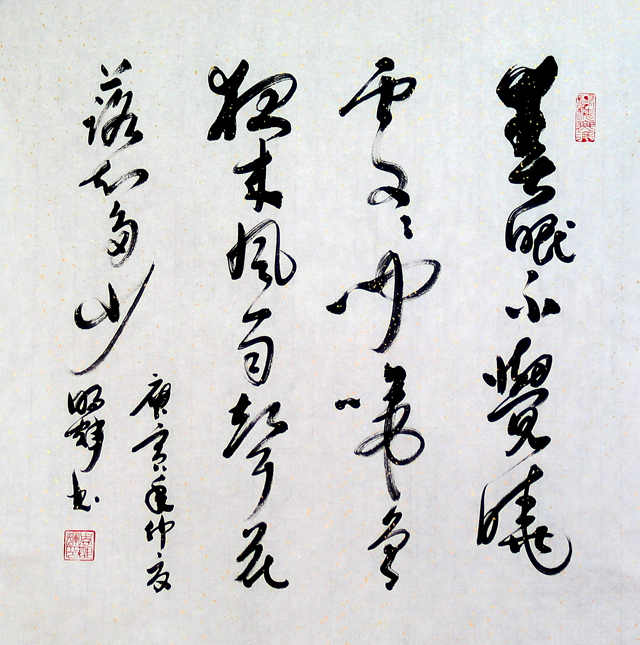 春眠不覺曉
處〻聞啼鳥
夜来風雨聲花
落知多少
庚寅年仲夏
明輝书